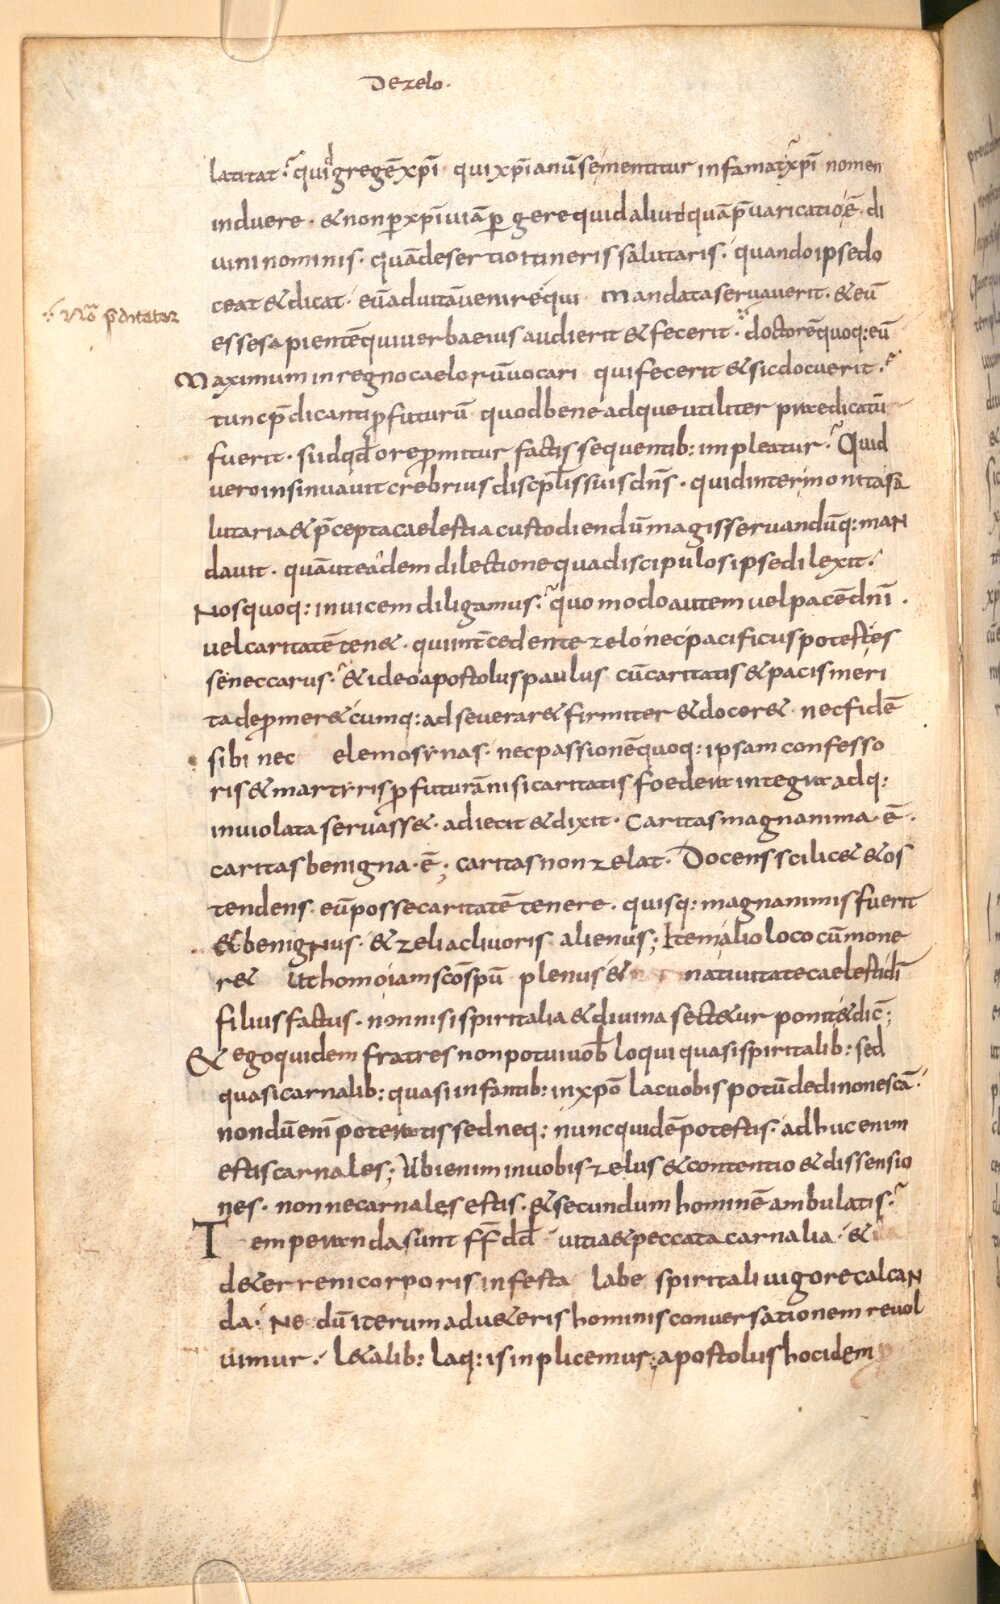 De zelo.
latitat. qui gregē xp̄i qui xp̄ianū sementitur infamat xp̄i nomen
induere. & non ꝑ xp̄i uiā pergere quid aliud quā p̄uaricatio ē. di
uini nominis. quā desertio itineris salutaris. quando ipse do
ceat & dicat. eū ad uitā uenire qui mandata seruauerit. & eū
esse sapientē qui uerba eius audierit & fecerit. doctorē quoq: eū
Maximum in regno caelorū uocari qui fecerit & sic docuerit.
tunc p̄dicanti ꝓfuturū quod bene adque utiliter praedicatū
fuerit. si id qd ore ꝓmitur factis sequentib: impleatur. Quid
uero insinuauit crebrius discipłis suis dn̄s. quid inter monita sa
lutaria & p̄cepta caelestia custodiendū magis seruandūq: maN
dauit. quā ut eadem dilectione qua discipulos ipse dilexit.
Nos quoq: inuicem diligamus. quomodo autem uel pacē dn̄i.
uel caritatē ten&. qui int̄cedente zelo nec pacificus potest es
se nec carus. & ideo apostolus paulus cū caritatis & pacis meri
ta deꝓmer& cumq: adseuerar& firmiter & docer&. nec fidē
sibi nec elemosynas. nec passionē quoq: ipsam confesso
ris & martyris ꝓfuturā nisi caritatis foedera integra adq:
inuiolata seruass&. adiecit & dixit. Caritas magnanima. ē.
caritas benigna. ē; caritas non zelat. Docens scilic& & os
tendens. eū posse caritatē tenere. quisq: magnanimis fuerit
& benigNus. & zeli ac liuoris alienus; Item alio loco cū mone
r& Ut homo iam sc̄o sp̄u plenus & natiuitate caelesti dī
filius factus. non nisi spiritalia & diuina sect&ur ponit & dic̄;
& ego quidem fratres non potui uob̄ loqui quasi spiritalib: sed
quasi carnalib: quasi infantib: in xp̄o lac uobis potū dedi non escā.
nondū enī poteratis sed neq: nunc quidē potestis. adhuc enim
estis carnales; Ubi enim in uobis zelus & contentio & dissensio
nes. nonne carnales estis. & secundum hominē ambulatis.
Temperanda sunt ff̄ dd̄ uitia & peccata carnalia. &
d&erreni corporis infesta labe spiritali uigore calcaN
da. Ne dū iterum ad u&eris hominis conuersationem reuol
uimur. l&alib: laq: is inplicemus. apostolus hoc idem